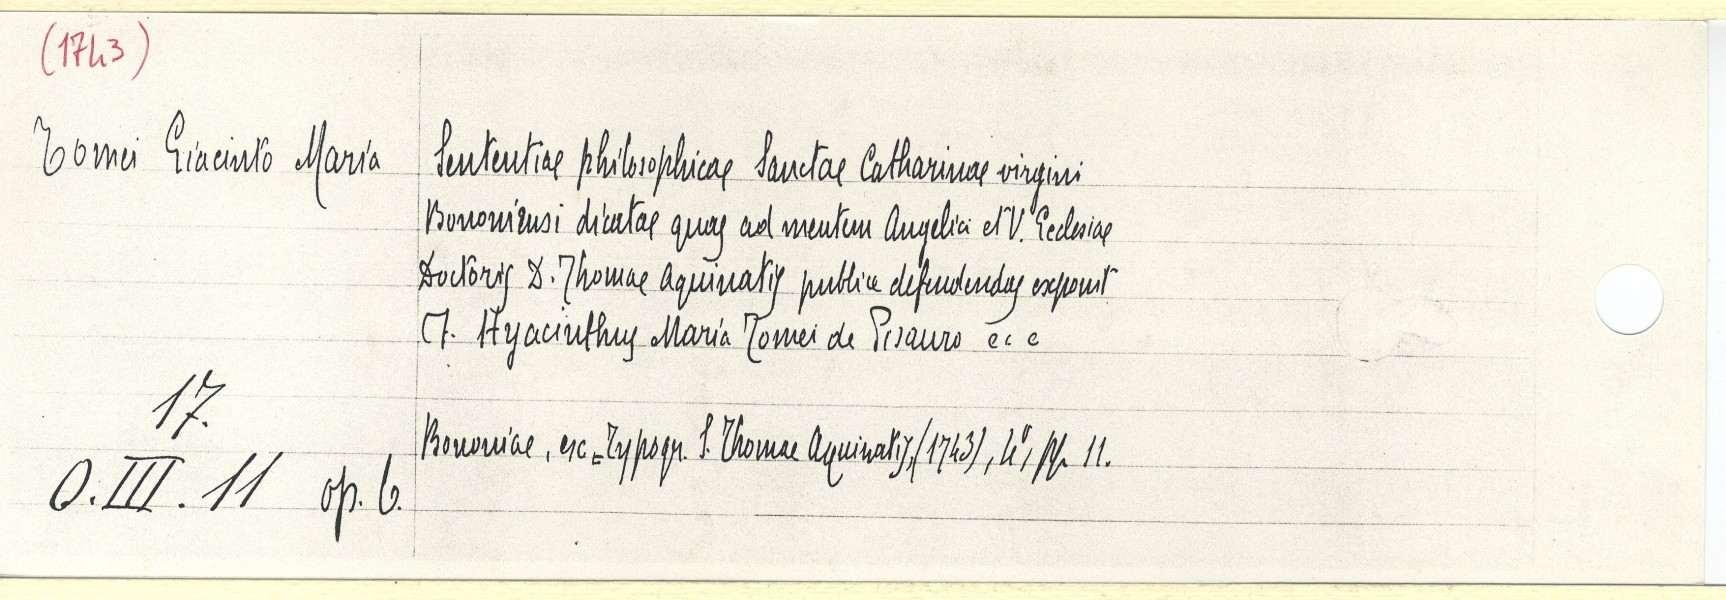 (1743)
Tomei Giacinto Maria
Sententiae philosophicae Sanctae Catharinae virgini
Bononiensi dicatae quas ad mentem Angelici et V. Ecclesiae
Doctoris D. Thomae Aquinatis publice defendendas exponit
F. Hyacinthus Maria Tomei de Pisauro ecc
17.
O.III.11 op. 6.
Bononiae, ex Typogr. S. Thomae Aquinatis, (1743), 4°, pp. 11.